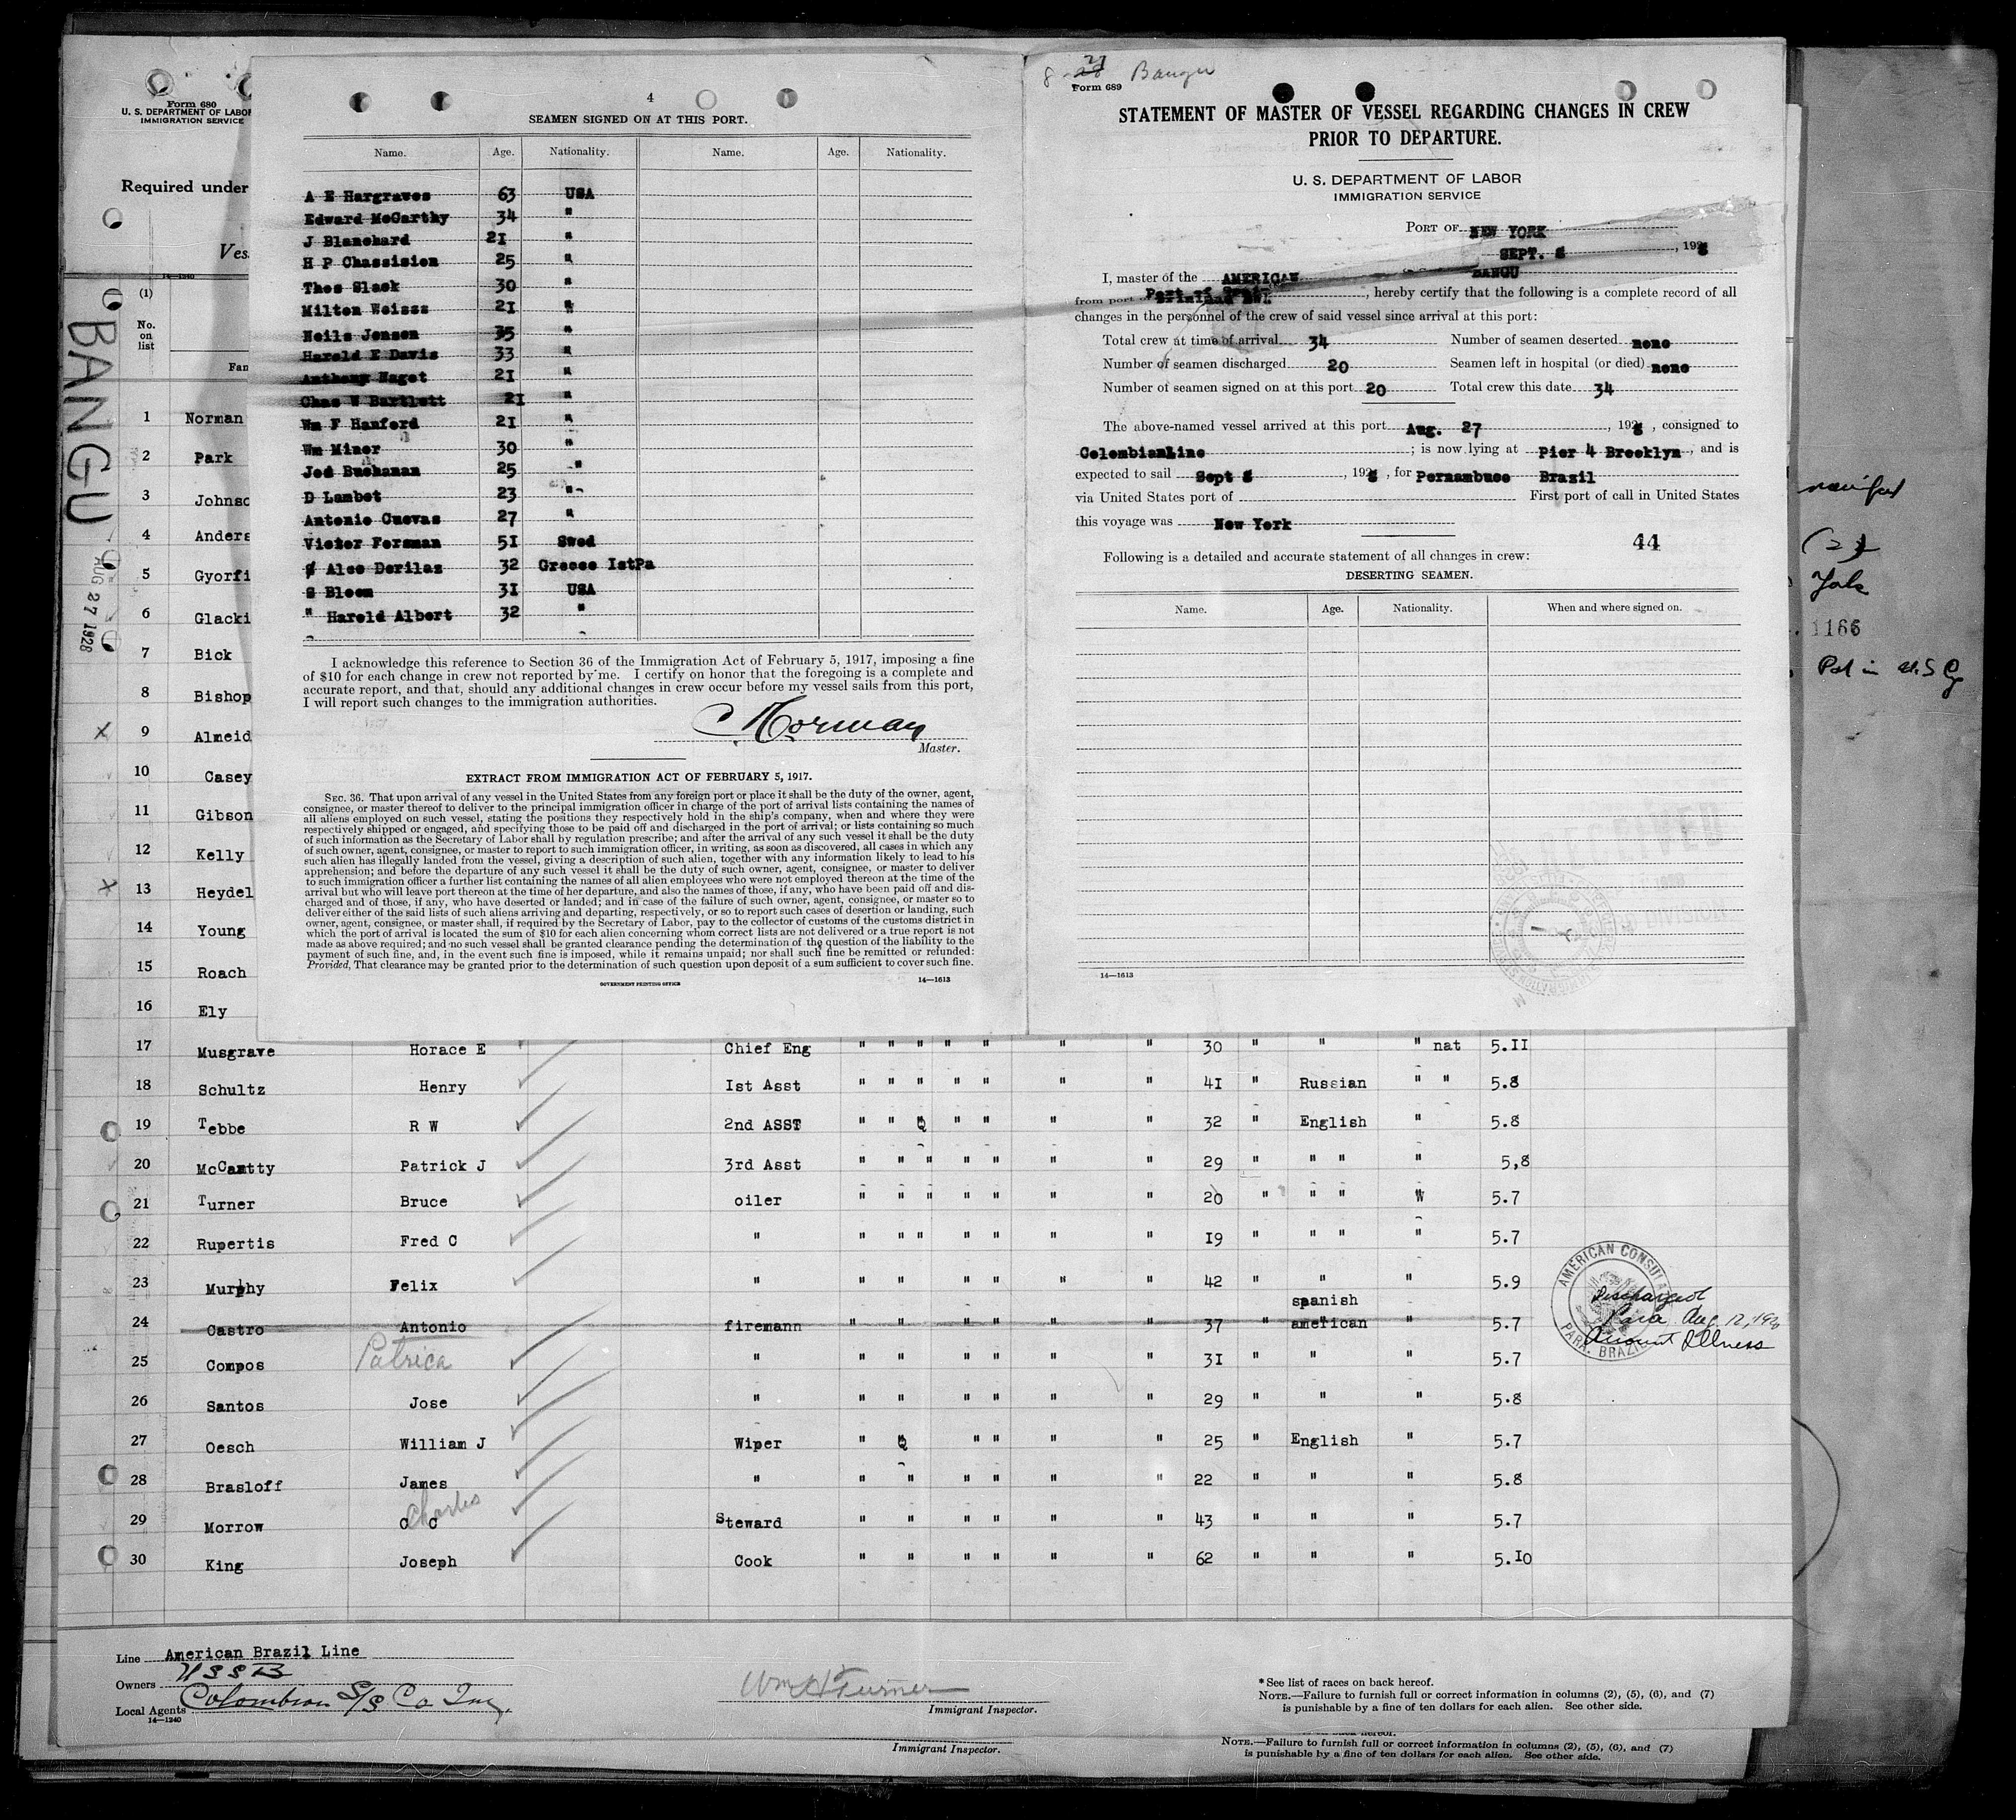 Form 680
U. S. DEPARTMENT OF LABOR
IMMIGRATION SERVICE
Required under
Ves
14—1240
(1)
No.
on
list
Fam
BANGU
AUG 27 1928
1 Norman
2 Park
3 Johnso
4 Anders
5 Gyorfi
6 Glacki
7 Bick
8 Bishop
9 Almeid
10 Casey
11 Gibson
12 Kelly
13 Heydel
14 Young
15 Roach
16 Ely
4
SEAMEN SIGNED ON AT THIS PORT.
Name. Age. Nationality. Name. Age. Nationality.
A E Hargraves 63 USA
Edward McCarthy 34 "
J Blanchard 21 "
H P Chassision 25 "
Thos Slack 30 "
Milton Weisss 21 "
Neils Jensen 35 "
Harold E Davis 33 "
Anthony Naget 21 "
Chas W Bartlett 21 "
Wm F Hanford 21 "
Wm Miner 30 "
Jed Buchanan 25 "
D Lambet 23 "
Antonio Cuevas 27 "
Victor Forsman 51 Swed
Alec Derilas 32 Greece IstPa
S Bloom 31 USA
" Harold Albert 32 "
I acknowledge this reference to Section 36 of the Immigration Act of February 5, 1917, imposing a fine
of $10 for each change in crew not reported by me. I certify on honor that the foregoing is a complete and
accurate report, and that, should any additional changes in crew occur before my vessel sails from this port,
I will report such changes to the immigration authorities.
C Norman
Master.
EXTRACT FROM IMMIGRATION ACT OF FEBRUARY 5, 1917.
SEC. 36. That upon arrival of any vessel in the United States from any foreign port or place it shall be the duty of the owner, agent,
consignee, or master thereof to deliver to the principal immigration officer in charge of the port of arrival lists containing the names of
all aliens employed on such vessel, stating the positions they respectively hold in the ship's company, when and where they were
respectively shipped or engaged, and specifying those to be paid off and discharged in the port of arrival; or lists containing so much
of such information as the Secretary of Labor shall by regulation prescribe; and after the arrival of any such vessel it shall be the duty
of such owner, agent, consignee, or master to report to such immigration officer, in writing, as soon as discovered, all cases in which any
such alien has illegally landed from the vessel, giving a description of such alien, together with any information likely to lead to his
apprehension; and before the departure of any such vessel it shall be the duty of such owner, agent, consignee, or master to deliver
to such immigration officer a further list containing the names of all alien employees who were not employed thereon at the time of the
arrival but who will leave port thereon at the time of her departure, and also the names of those, if any, who have been paid off and dis-
charged and of those, if any, who have deserted or landed; and in case of the failure of such owner, agent, consignee, or master so to
deliver either of the said lists of such aliens arriving and departing, respectively, or so to report such cases of desertion or landing, such
owner, agent, consignee, or master shall, if required by the Secretary of Labor, pay to the collector of customs of the customs district in
which the port of arrival is located the sum of $10 for each alien concerning whom correct lists are not delivered or a true report is not
made as above required; and no such vessel shall be granted clearance pending the determination of the question of the liability to the
payment of such fine, and, in the event such fine is imposed, while it remains unpaid; nor shall such fine be remitted or refunded:
Provided, That clearance may be granted prior to the determination of such question upon deposit of a sum sufficient to cover such fine.
GOVERNMENT PRINTING OFFICE 14—1613
8 Bangu
Form 689
STATEMENT OF MASTER OF VESSEL REGARDING CHANGES IN CREW
PRIOR TO DEPARTURE.
U. S. DEPARTMENT OF LABOR
IMMIGRATION SERVICE
PORT OF NEW YORK
SEPT. 8, 1928
I, master of the AMERICAN BANGU
from port Port of Spain, hereby certify that the following is a complete record of all
changes in the personnel of the crew of said vessel since arrival at this port:
Total crew at time of arrival 34 Number of seamen deserted none
Number of seamen discharged 20 Seamen left in hospital (or died) none
Number of seamen signed on at this port 20 Total crew this date 34
The above-named vessel arrived at this port Aug. 27, 1928, consigned to
ColombianLine; is now lying at Pier 4 Brooklyn, and is
expected to sail Sept 8, 1928, for Pernambuco Brazil
via United States port of First port of call in United States
this voyage was New York
44
Following is a detailed and accurate statement of all changes in crew:
DESERTING SEAMEN.
Name. Age. Nationality. When and where signed on.
14—1613
(2)
1166
17 Musgrave Horace E Chief Eng " " " " " " " 30 " " " nat 5.11
18 Schultz Henry 1st Asst " " " " " " " 41 " Russian " " 5.8
19 Tebbe R W 2nd ASST " " " " " " 32 " English " 5.8
20 McCartty Patrick J 3rd Asst " " " " " " " 29 " " " " 5,8
21 Turner Bruce oiler " " " " " " " 20 " " " W 5.7
22 Rupertis Fred C " " " " " " " " 19 " " " " 5.7
23 Murphy Felix " " " " " " " 42 " " " 5.9
spanish
24 Castro Antonio firemann " " " " " " 37 " american " 5.7
25 Compos Patrica " " " " " " " 31 " " " 5.7
26 Santos Jose " " " " " " " 29 " " " 5.8
27 Oesch William J Wiper " " " " " 25 " English " 5.7
28 Brasloff James " " " " " " " 22 " " " 5.8
29 Morrow C C Charles Steward " " " " " " 43 " " " 5.7
30 King Joseph Cook " " " " " " 62 " " " 5.10
AMERICAN CONSULA
PARA. BRAZIL
Discharged
Para Aug 12, 192
Account Illness
Line American Brazil Line
Owners U S S B
Local Agents Colombian S/S Co Inc,
14—1240
Wm H Turner
Immigrant Inspector.
*See list of races on back hereof.
NOTE.—Failure to furnish full or correct information in columns (2), (5), (6), and (7)
is punishable by a fine of ten dollars for each alien. See other side.
Immigrant Inspector.
NOTE.—Failure to furnish full or correct information in columns (2), (5), (6), and (7)
is punishable by a fine of ten dollars for each alien. See other side.